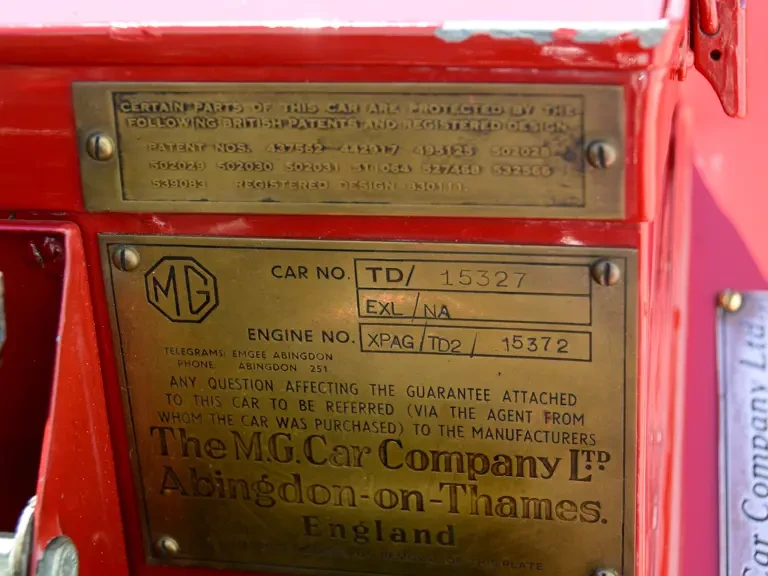 CERTAIN PARTS OF THIS CAR ARE PROTECTED BY THE
FOLLOWING BRITISH PATENTS AND REGISTERED DESIGN
PATENT NOS. 437562 442917 493125 502028
502029 502030 502031 511064 527460 532566
539083 REGISTERED DESIGN 830111.
MG
CAR NO. TD/ 15327
EXL/NA
ENGINE NO. XPAG/TD2/ 15372
TELEGRAMS: EMGEE ABINGDON
PHONE: ABINGDON 251
ANY QUESTION AFFECTING THE GUARANTEE ATTACHED
TO THIS CAR TO BE REFERRED (VIA THE AGENT FROM
WHOM THE CAR WAS PURCHASED) TO THE MANUFACTURERS
The M.G. Car Company LTD
Abingdon-on-Thames.
England
REMOVAL OF THIS PLATE
Car Company Ltd